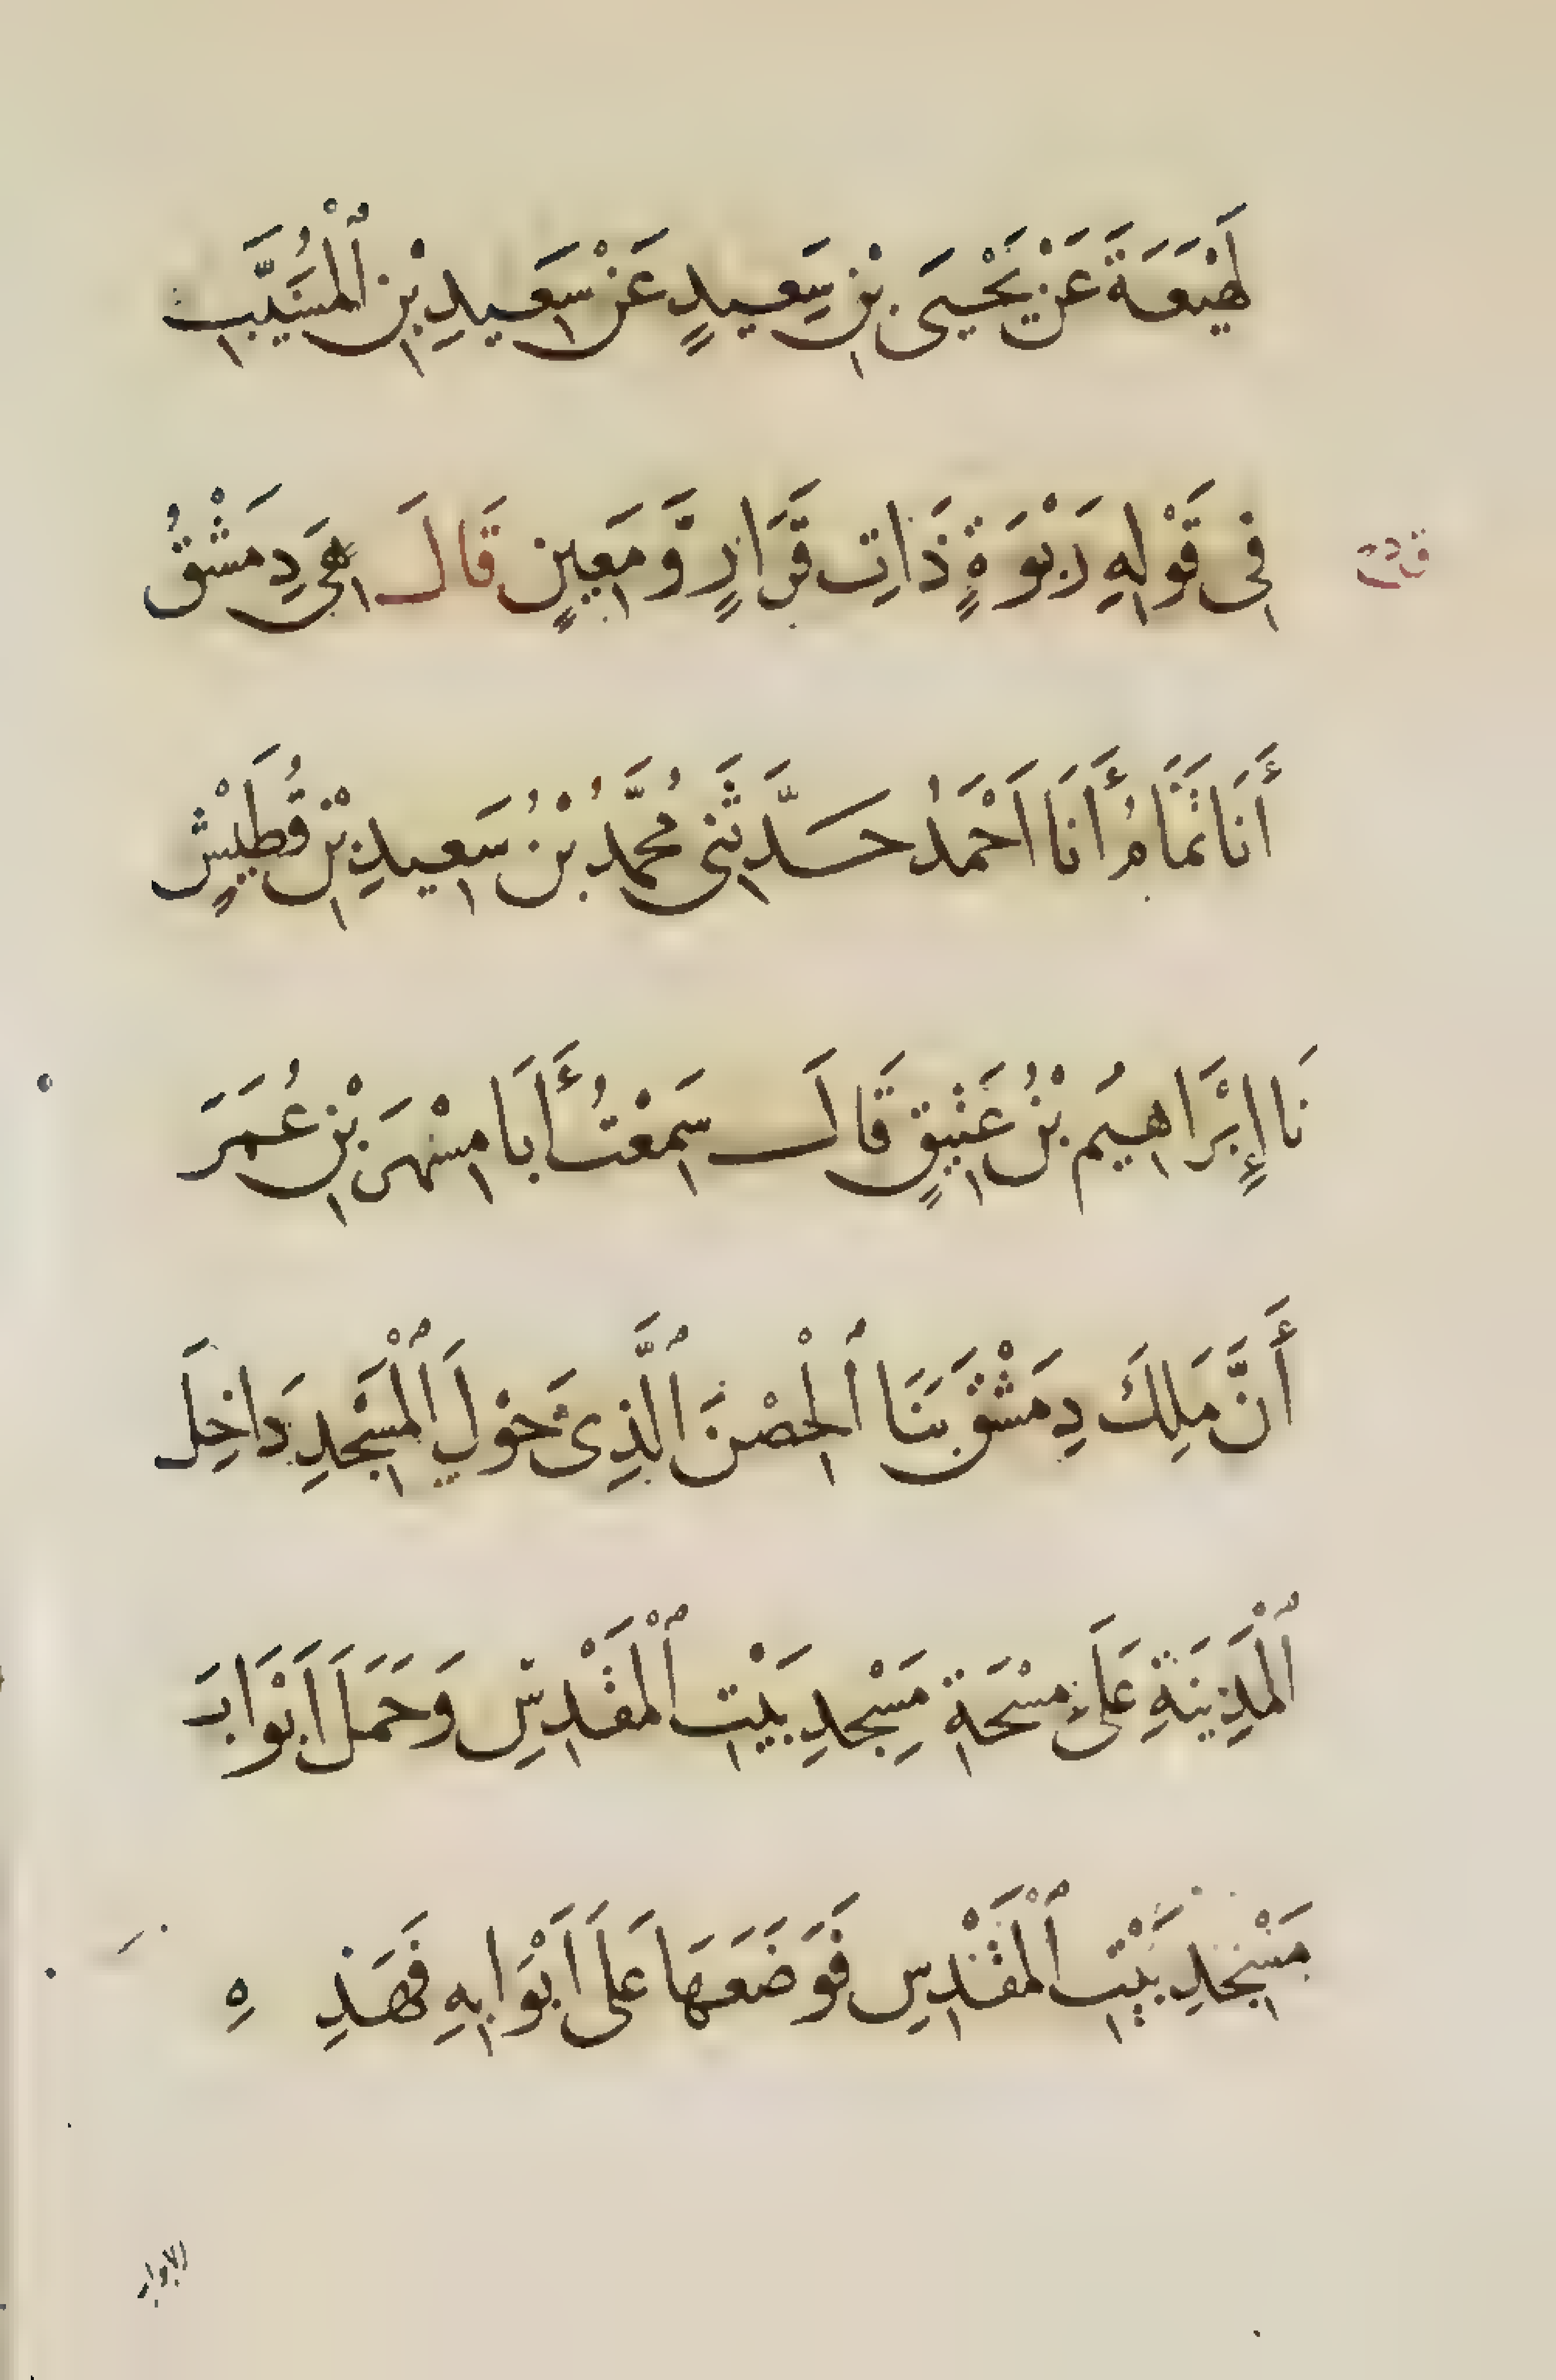 لَهِيْعَةَ عَنْ يَحْيَى بْنِ سَعِيدٍ عَنْ سَعِيدِ بْنِ ٱلْمُسَيَّبِ
فِي قَوْلِهِ رَبْوَةٍ ذَاتِ قَرَارٍ وَّمَعِينٍ قَالَ هِيَ دِمَشْقُ
أَنَا تَمَّامُ أَنَا اَحْمَدُ حَدَّثَنِي مُحَمَّدُ بْنُ سَعِيدِ بْنِ قُطَيْشٍ
نَا إِبْرَاهِيمُ بْنُ عَتِيقٍ قَالَ سَمِعْتُ أَبَا مِسْهَرَ بْنِ عُمَرَ
أَنَّ مَلِكَ دِمَشْقَ بَنَا ٱلْحِصْنَ ٱلَّذِي حَوْلَ ٱلْمَسْجِدِ دَاخِلَ
ٱلْمَدِينَةِ عَلَى مِسْحَةِ مَسْجِدِ بَيْتِ ٱلْمَقْدِسِ وَحَمَلَ اَبْوَابَ
مَسْجِدِ بَيْتِ ٱلْمَقْدِسِ فَوَضَعَهَا عَلَى اَبْوَابِهِ فَهَذِهِ
الابواب